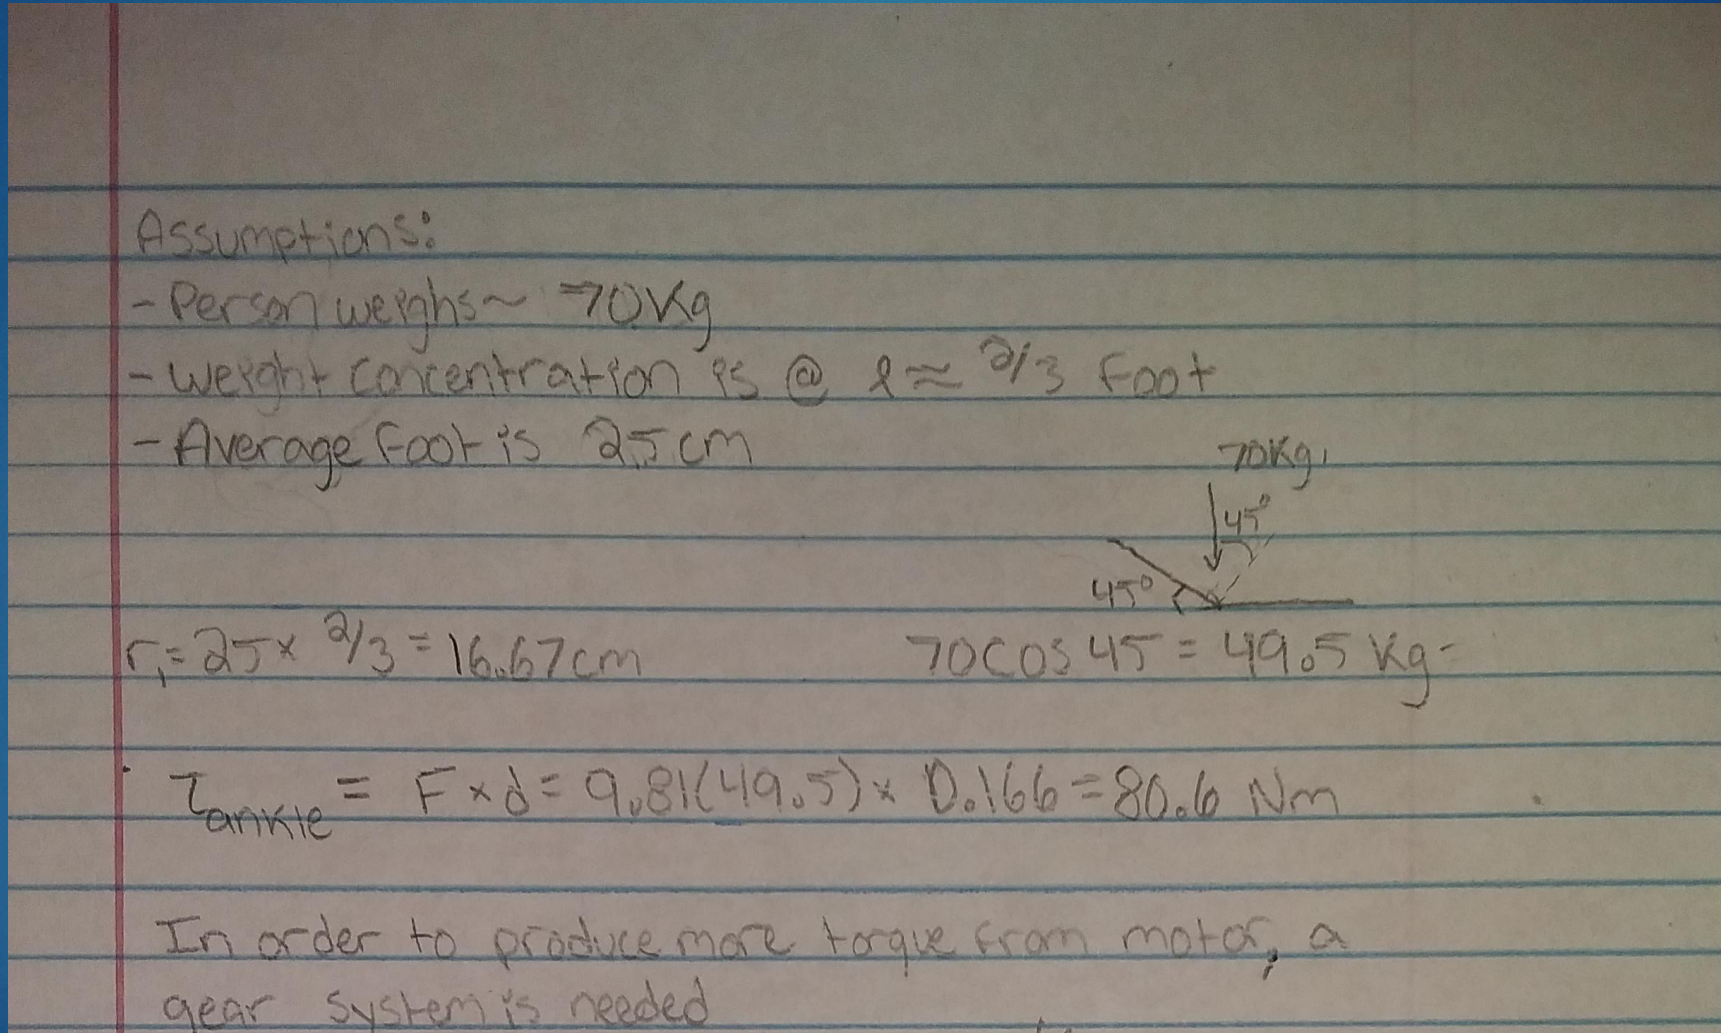 Assumptions:
- Person weighs ~ 70Kg
- Weight concentration is @ l ≈ 2/3 foot
- Average foot is 25cm
70Kg
45°
45°
r₁ = 25 × 2/3 = 16.67cm
70cos 45 = 49.5 Kg
τankle = F × d = 9.81(49.5) × 0.166 = 80.6 Nm
In order to produce more torque from motor, a
gear system is needed